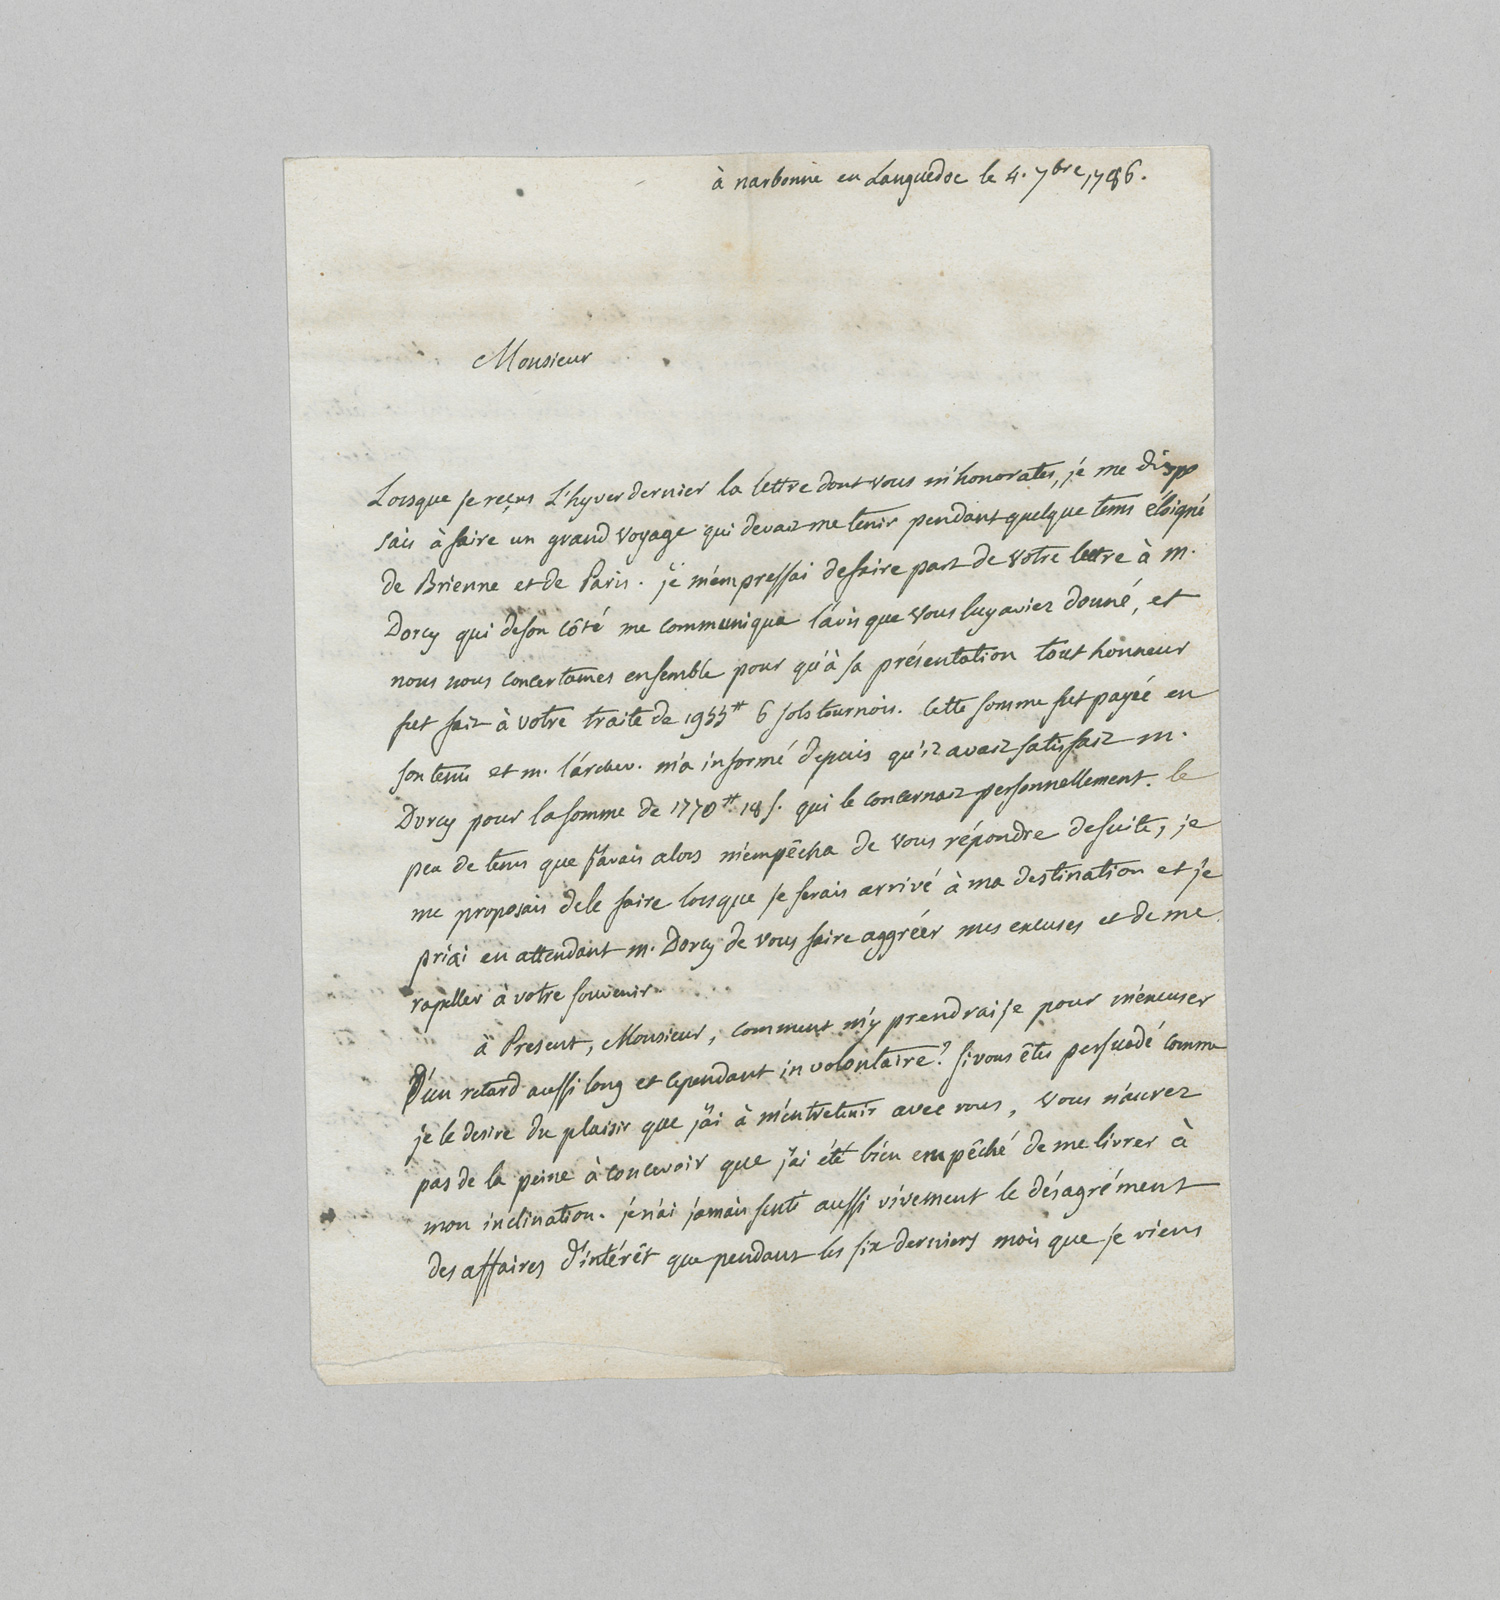 à narbonne en Languedoc le 4. 7bre, 1786.
Monsieur
Lorsque je reçus L'hyver dernier la lettre dont vous m'honorates, je me dispo
sais à faire un grand voyage qui devait me tenir pendant quelque tems éloigné
de Brienne et de Paris. je m'empressai de faire part de votre lettre à m.
Dorcy qui de son côté me communiqua l'avis que vous luy aviez donné, et
nous nous concertames ensemble pour qu'à sa présentation tout honneur
fut fait à votre traite de 1955ᵗᵗ 6 sols tournois. Cette somme fut payée en
son tems et m. l'archev. m'a informé depuis qu'il avait satisfait m.
Dorcy pour la somme de 1778ᵗᵗ 18 s. qui le concernait personnellement. le
peu de tems que j'avais alors m'empêcha de vous répondre de suite, je
me proposais de le faire lorsque je serais arrivé à ma destination et je
priai en attendant m. Dorcy de vous faire aggréer mes excuses et de me
rapeller à votre souvenir.
à Present, Monsieur, comment m'y prendrai je pour m'excuser
D'un retard aussi long et cependant involontaire? si vous êtes persuadé comme
je le desire du plaisir que j'ai à m'entretenir avec vous, vous n'aurez
pas de la peine à concevoir que j'ai été bien empêché de me livrer à
mon inclination. je n'ai jamais senti aussi vivement le désagrément
des affaires d'intérêt que pendant les six derniers mois que je viens